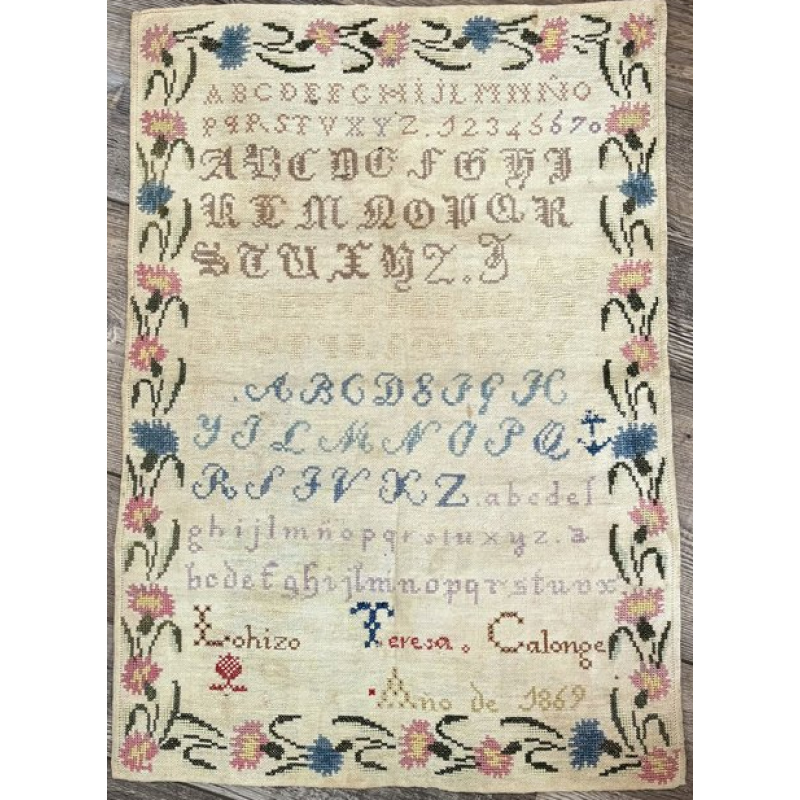 ABCDEFGHIJLMNÑO
PQRSTVXYZ.1234567o
ABCDEFGHI
KLMNOPQR
STUXYZ.J
.ABCDEFGH
YJLMNOPQ
RSTVXZ.abcdef
ghijlmñopqrstuxyz.a
bcdefghijlmnopqrstuvx
Lohizo Teresa. Calonge
Año de 1869